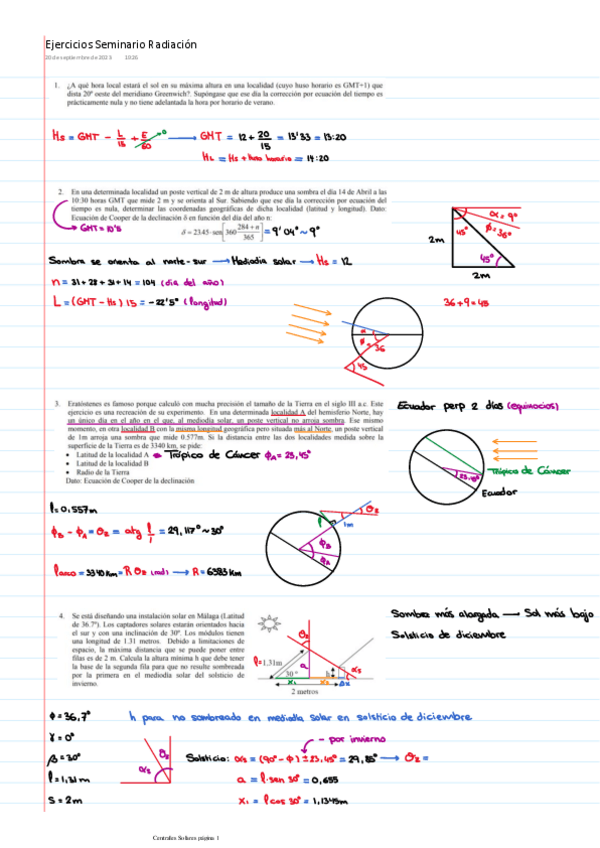 Ejercicios Seminario Radiación
20 de septiembre de 2023 10:26
1. ¿A qué hora local estará el sol en su máxima altura en una localidad (cuyo huso horario es GMT+1) que
dista 20º oeste del meridiano Greenwich?. Supóngase que ese día la corrección por ecuación del tiempo es
prácticamente nula y no tiene adelantada la hora por horario de verano.
Hs = GMT - L/15 + E/60 → 0 → GMT = 12 + 20/15 = 13'33 = 13:20
HL = Hs + huso horario = 14:20
2. En una determinada localidad un poste vertical de 2 m de altura produce una sombra el día 14 de Abril a las
10:30 horas GMT que mide 2 m y se orienta al Sur. Sabiendo que ese día la corrección por ecuación del
tiempo es nula, determinar las coordenadas geográficas de dicha localidad (latitud y longitud). Dato:
Ecuación de Cooper de la declinación δ en función del día del año n:
GMT = 10'5
δ = 23.45·sen[360 (284 + n)/365] = 9'04º ~ 9º
α = 9º
ϕ = 36º
45º
45º
2m
2m
36+9=45
Sombra se orienta al norte-sur → Mediodía solar → Hs = 12
n = 31 + 28 + 31 + 14 = 104 (día del año)
L = (GMT - Hs) 15 = -22'5º (longitud)
ϕ = 36
45
3. Eratóstenes es famoso porque calculó con mucha precisión el tamaño de la Tierra en el siglo III a.c. Este
ejercicio es una recreación de su experimento. En una determinada localidad A del hemisferio Norte, hay
un único día en el año en el que, al mediodía solar, un poste vertical no arroja sombra. Ese mismo
momento, en otra localidad B con la misma longitud geográfica pero situada más al Norte, un poste vertical
de 1m arroja una sombra que mide 0.577m. Si la distancia entre las dos localidades medida sobre la
superficie de la Tierra es de 3340 km, se pide:
• Latitud de la localidad A → Trópico de Cáncer ϕA = 23,45º
• Latitud de la localidad B
• Radio de la Tierra
Dato: Ecuación de Cooper de la declinación
Ecuador perp 2 días (equinocios)
Trópico de Cáncer
23.45º
Ecuador
l = 0,557m
ϕB - ϕA = θz = atg l/1 = 29,117º ~ 30º
l arco = 3340 Km = R θz (rad) → R = 6383 Km
θz
1m
l
ϕB
ϕA
4. Se está diseñando una instalación solar en Málaga (Latitud
de 36.7º). Los captadores solares estarán orientados hacia
el sur y con una inclinación de 30º. Los módulos tienen
una longitud de 1.31 metros. Debido a limitaciones de
espacio, la máxima distancia que se puede poner entre
filas es de 2 m. Calcula la altura mínima h que debe tener
la base de la segunda fila para que no resulte sombreada
por la primera en el mediodía solar del solsticio de
invierno.
θz
l=1,31m
a
30º
h
αs
x1
x2
Δx
2 metros
Sombra más alargada → Sol más bajo
Solsticio de diciembre
ϕ = 36,7º
h para no sombreado en mediodía solar en solsticio de diciembre
γ = 0º
- por invierno
β = 30º
θz
αs
Solsticio: αs = (90º - ϕ) ± 23,45º = 29,85º → θz =
l = 1,31 m
a = l·sen 30º = 0,655
s = 2m
x1 = l cos 30º = 1,1345m
Centrales Solares página 1